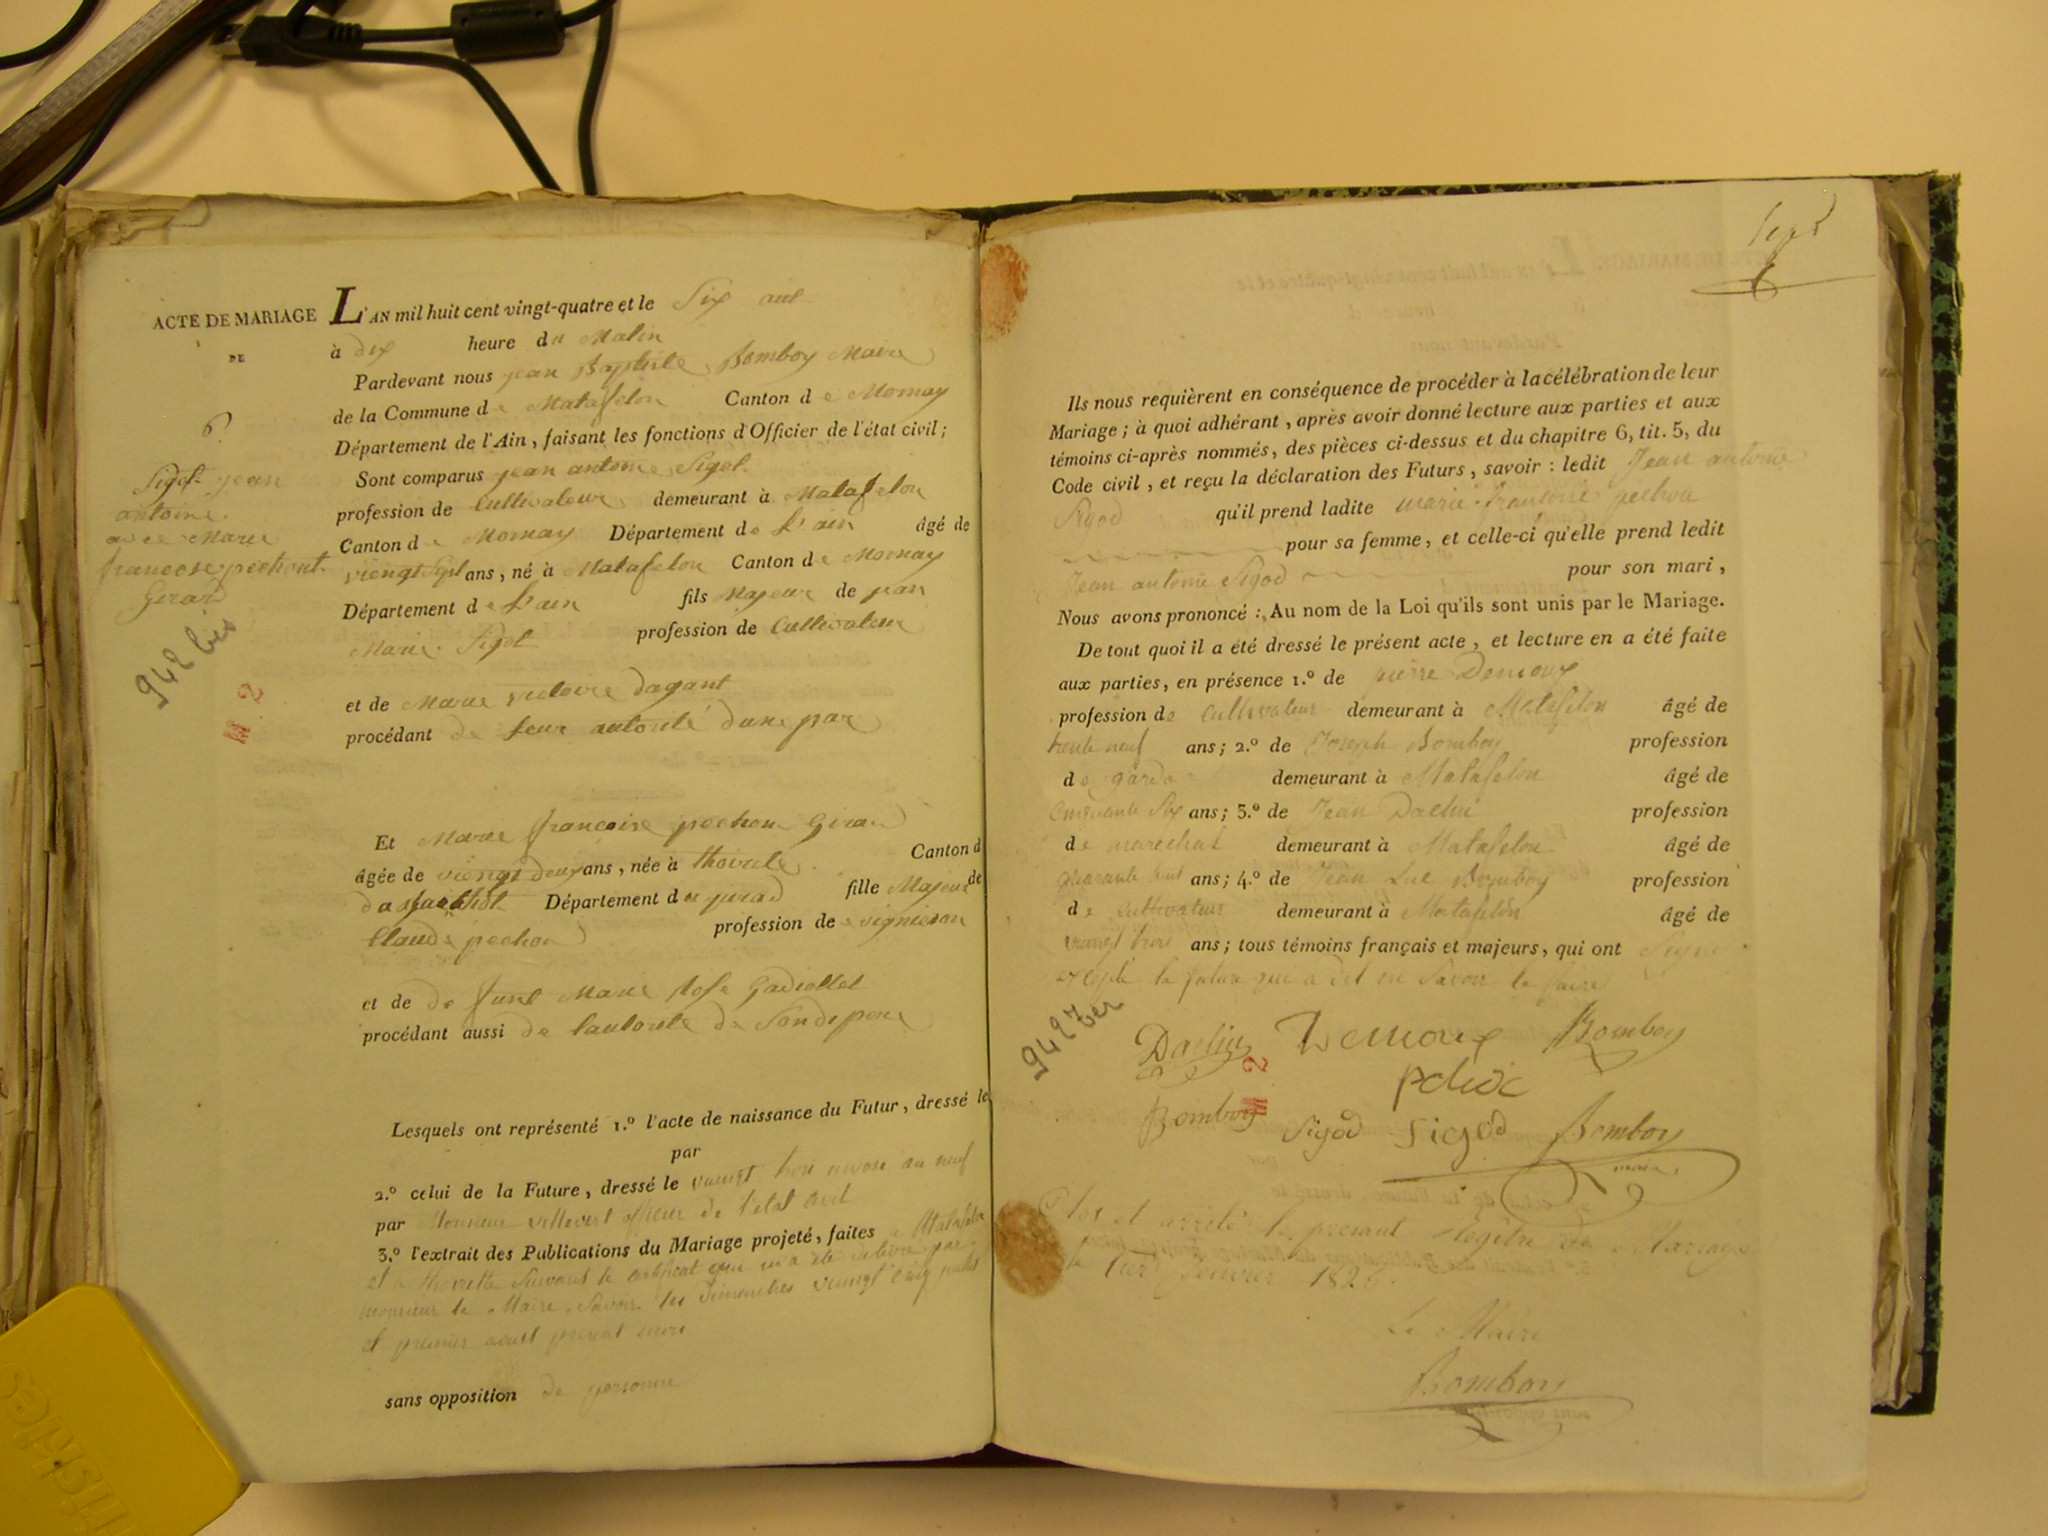 ACTE DE MARIAGE
DE
6.
Sigot jean
antoine
avec Marie
francoise pechout
Girard
942 bis
M 2
L'AN mil huit cent vingt-quatre et le Six
à dix heure du Matin
Pardevant nous jean Baptiste Bomboy Maire
de la Commune de Matafelon Canton de Mornay
Département de l'Ain, faisant les fonctions d'Officier de l'état civil;
Sont comparus jean antoine Sigot
profession de Cultivateur demeurant à Matafelon
Canton de Mornay Département de L'ain âgé de
viengt Sept ans, né à Matafelon Canton de Mornay
Département de L'ain fils Majeur de jean
Marie Sigot profession de Cultivateur
et de Marie victoire dagant
procédant de leur autorité dune par
Et Marie francoise pechou Girard
âgée de viengt deux ans, née à thoirete Canton d
Département du jurad fille Majeur de
Claude pechou profession de vigneron
et de de Marie Rose Gadiollet
procédant aussi de lautorité de Sondi pere
Lesquels ont représenté 1.º l'acte de naissance du Futur, dressé le
par
2.º celui de la Future, dressé le vaingt trois nivose an neuf
par Monsieur villevert officier de l'etat civil
3.º l'extrait des Publications du Mariage projeté, faites a Matafelon
et a thoirette Suivant le certificat qui m'a été délivré par
monsieur le Maire Savoir les Dimanches vaingt cinq juillet
et premier aoust present mois
sans opposition de personne
Sept
Ils nous requièrent en conséquence de procéder à la célébration de leur
Mariage; à quoi adhérant, après avoir donné lecture aux parties et aux
témoins ci-après nommés, des pièces ci-dessus et du chapitre 6, tit. 5, du
Code civil, et reçu la déclaration des Futurs, savoir: ledit Jean antoine
Sigod qu'il prend ladite marie françoise pechou
pour sa femme, et celle-ci qu'elle prend ledit
Jean antoine Sigod pour son mari,
Nous avons prononcé: Au nom de la Loi qu'ils sont unis par le Mariage.
De tout quoi il a été dressé le présent acte, et lecture en a été faite
aux parties, en présence 1.º de pierre Demoux
profession de Cultivateur demeurant à Matafelon âgé de
trente neuf ans; 2.º de Joseph Bomboy profession
de garde demeurant à Matafelon âgé de
Cinquante Six ans; 3.º de Jean Daclin profession
de marechal demeurant à Matafelon âgé de
quarante huit ans; 4.º de Jean Luc Bomboy profession
de Cultivateur demeurant à Matafelon âgé de
vaingt trois ans; tous témoins français et majeurs, qui ont Signé
excepté la future qui a dit ne Savoir le faire
942 ter
M 2
Daclin Demoux Bomboy
Bomboy Sigod Sigod Bomboy
maire
Clos et arrêté le present Registre de Mariage
le 1er Janvier 1825
Le Maire
Bomboy